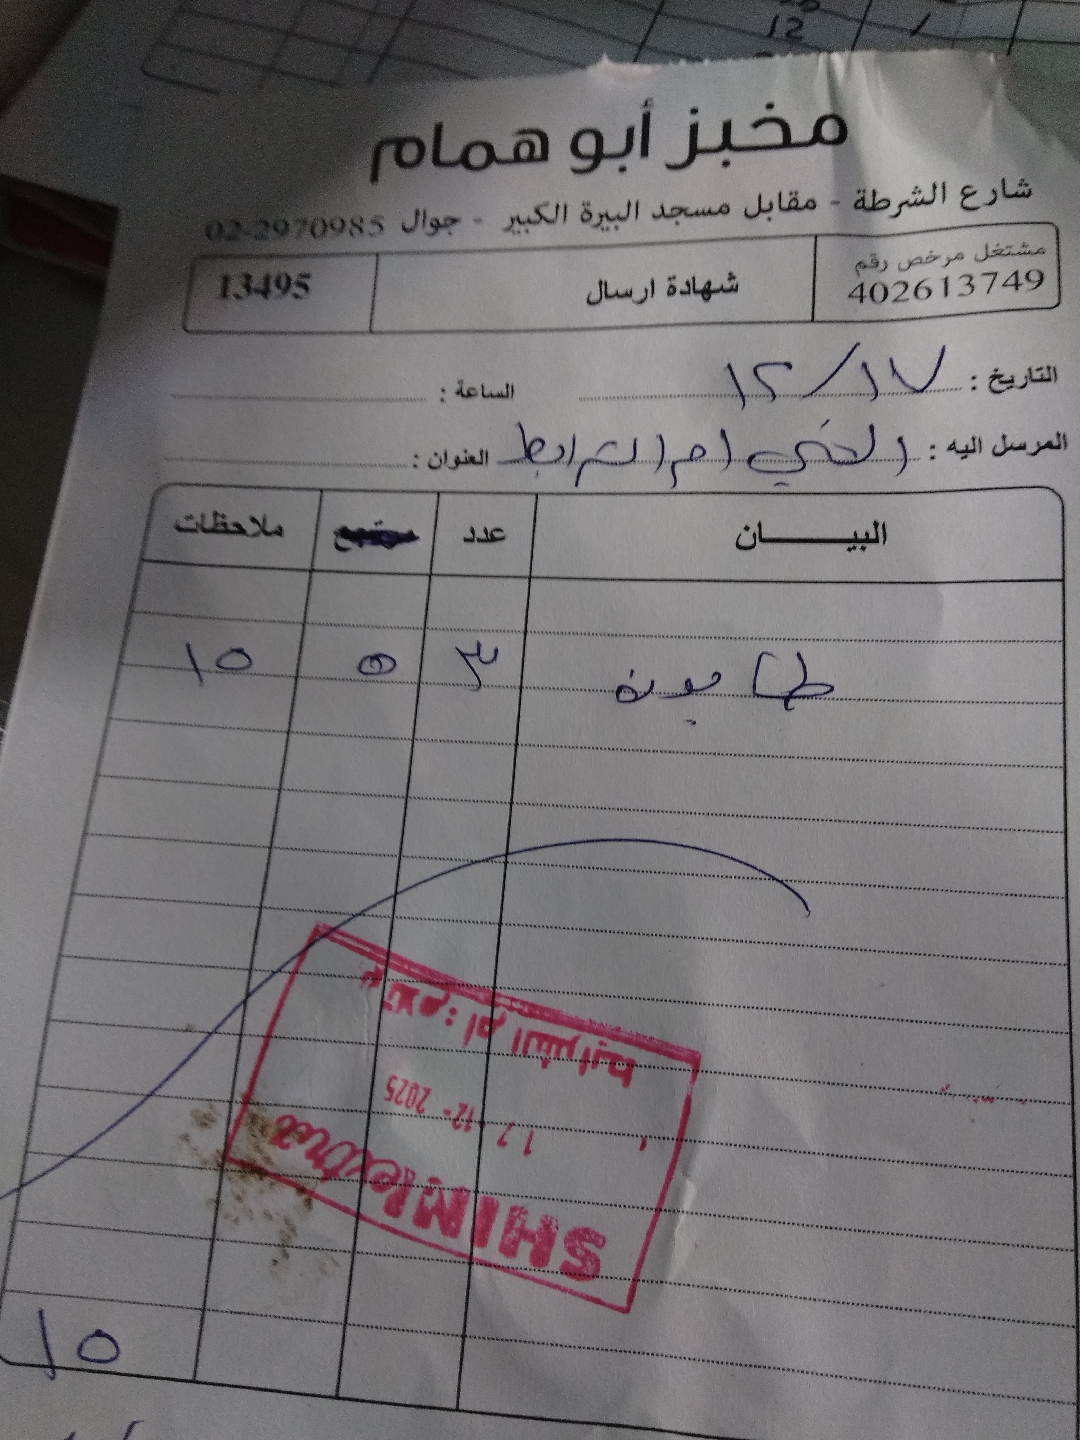 12
مخبز أبو همام
شارع الشرطة - مقابل مسجد البيرة الكبير - جوال 02-2970985
مشتغل مرخص رقم 402613749
شهادة ارسال
13495
التاريخ : ١٢/١٧ الساعة :
المرسل اليه : ام الشرايط العنوان :
البيــــــان عدد ملاحظات
طابون ٣ ٥ ١٥
فرع : أم الشرايط
17 -12- 2025
SHIMI extra
١٥